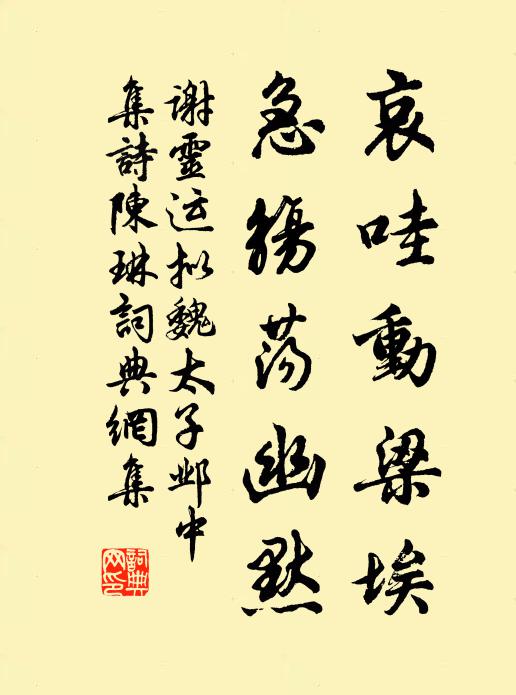 哀哇動梁埃
急觴蕩幽默
谢靈运拟魏太子邺中
集詩陳琳詞典網集
詞典网印